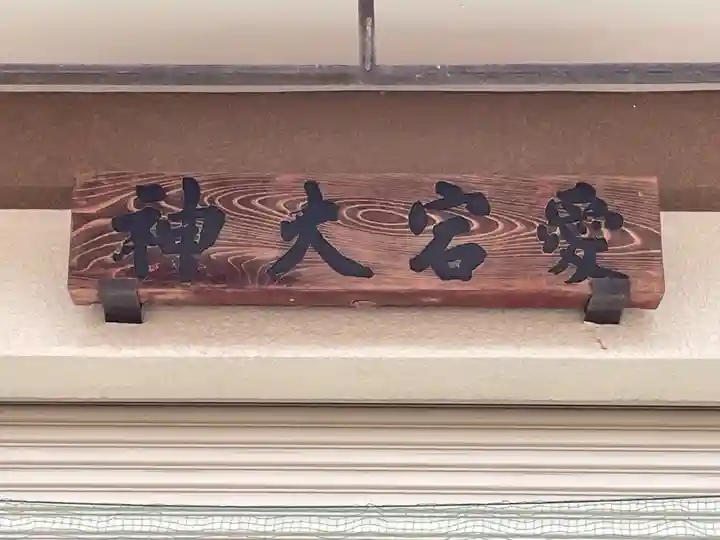 愛宕大神